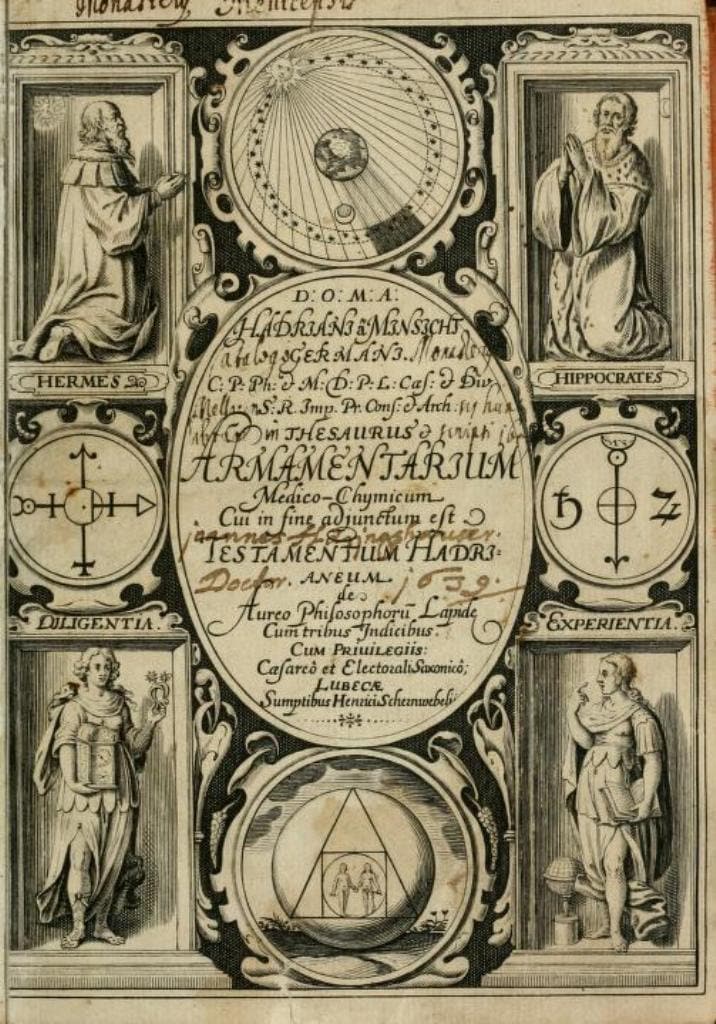 Monasterij
D: O: M: A:
HADRIANI à MŸNSICHT
GERMANI.
C: P: Ph: & M: D: P: L: Cæs: & Div:
S: R. Imp. Pr. Cons: & Arch:
THESAURUS &
ARMAMENTARIUM
Medico-Chymicum
Cui in fine adjunctum est
TESTAMENTUM HADRI=
Doctor. ANEUM. 1639.
de
Aureo Philosophorū Lapide
Cum tribus Indicibus.
CUM PRIUILEGIIS:
Cæsareô et Electorali Saxonicô;
LUBECÆ
Sumptibus Henrici Schernwebelij
HERMES
HIPPOCRATES
♄
DILIGENTIA.
EXPERIENTIA.